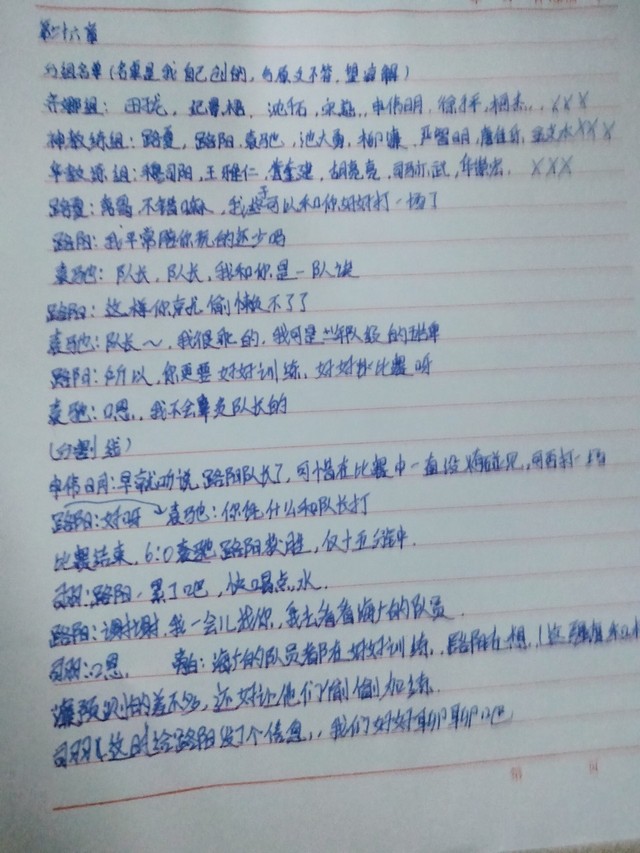 第二十六章
分组名单(名单是我自己创的，与原文不符，望谅解)
齐娜组：田珑，池拓，申伟日月，徐子平，XXX
神教练组：路夏，路阳，袁驰，池大勇，柳濂，严智明，唐佳乐，XXX
华教练组：穆司阳，王雅仁，胡亮亮，XXX
路夏：不错嘛，我终于可以和你好好打一场了
路阳：我平常陪你玩的还少吗
袁驰：队长，队长，我和你是一队诶
路阳：这样你就偷懒不了了
袁驰：队长～，我很乖的，我可是少年队级的单
路阳：所以，你更要好好训练，好好比赛呀
袁驰：嗯，我不会辜负队长的
(分割线)
申伟日月：早就听说路阳队长了，可惜在比赛中一直没有碰见，可否打一场
路阳：好呀 袁驰：你凭什么和队长打
比赛结束，6:0袁驰路阳获胜，仅十五分钟
路阳，累了吧，快喝点水
路阳：谢谢，我一会儿找你，我去看看海广的队员
嗯， 旁白：海广的队员都在好好训练，路阳在想，(这
预测的差不多，还好让他们偷偷加练
这时给路阳发了个信息，我们好好聊聊吧